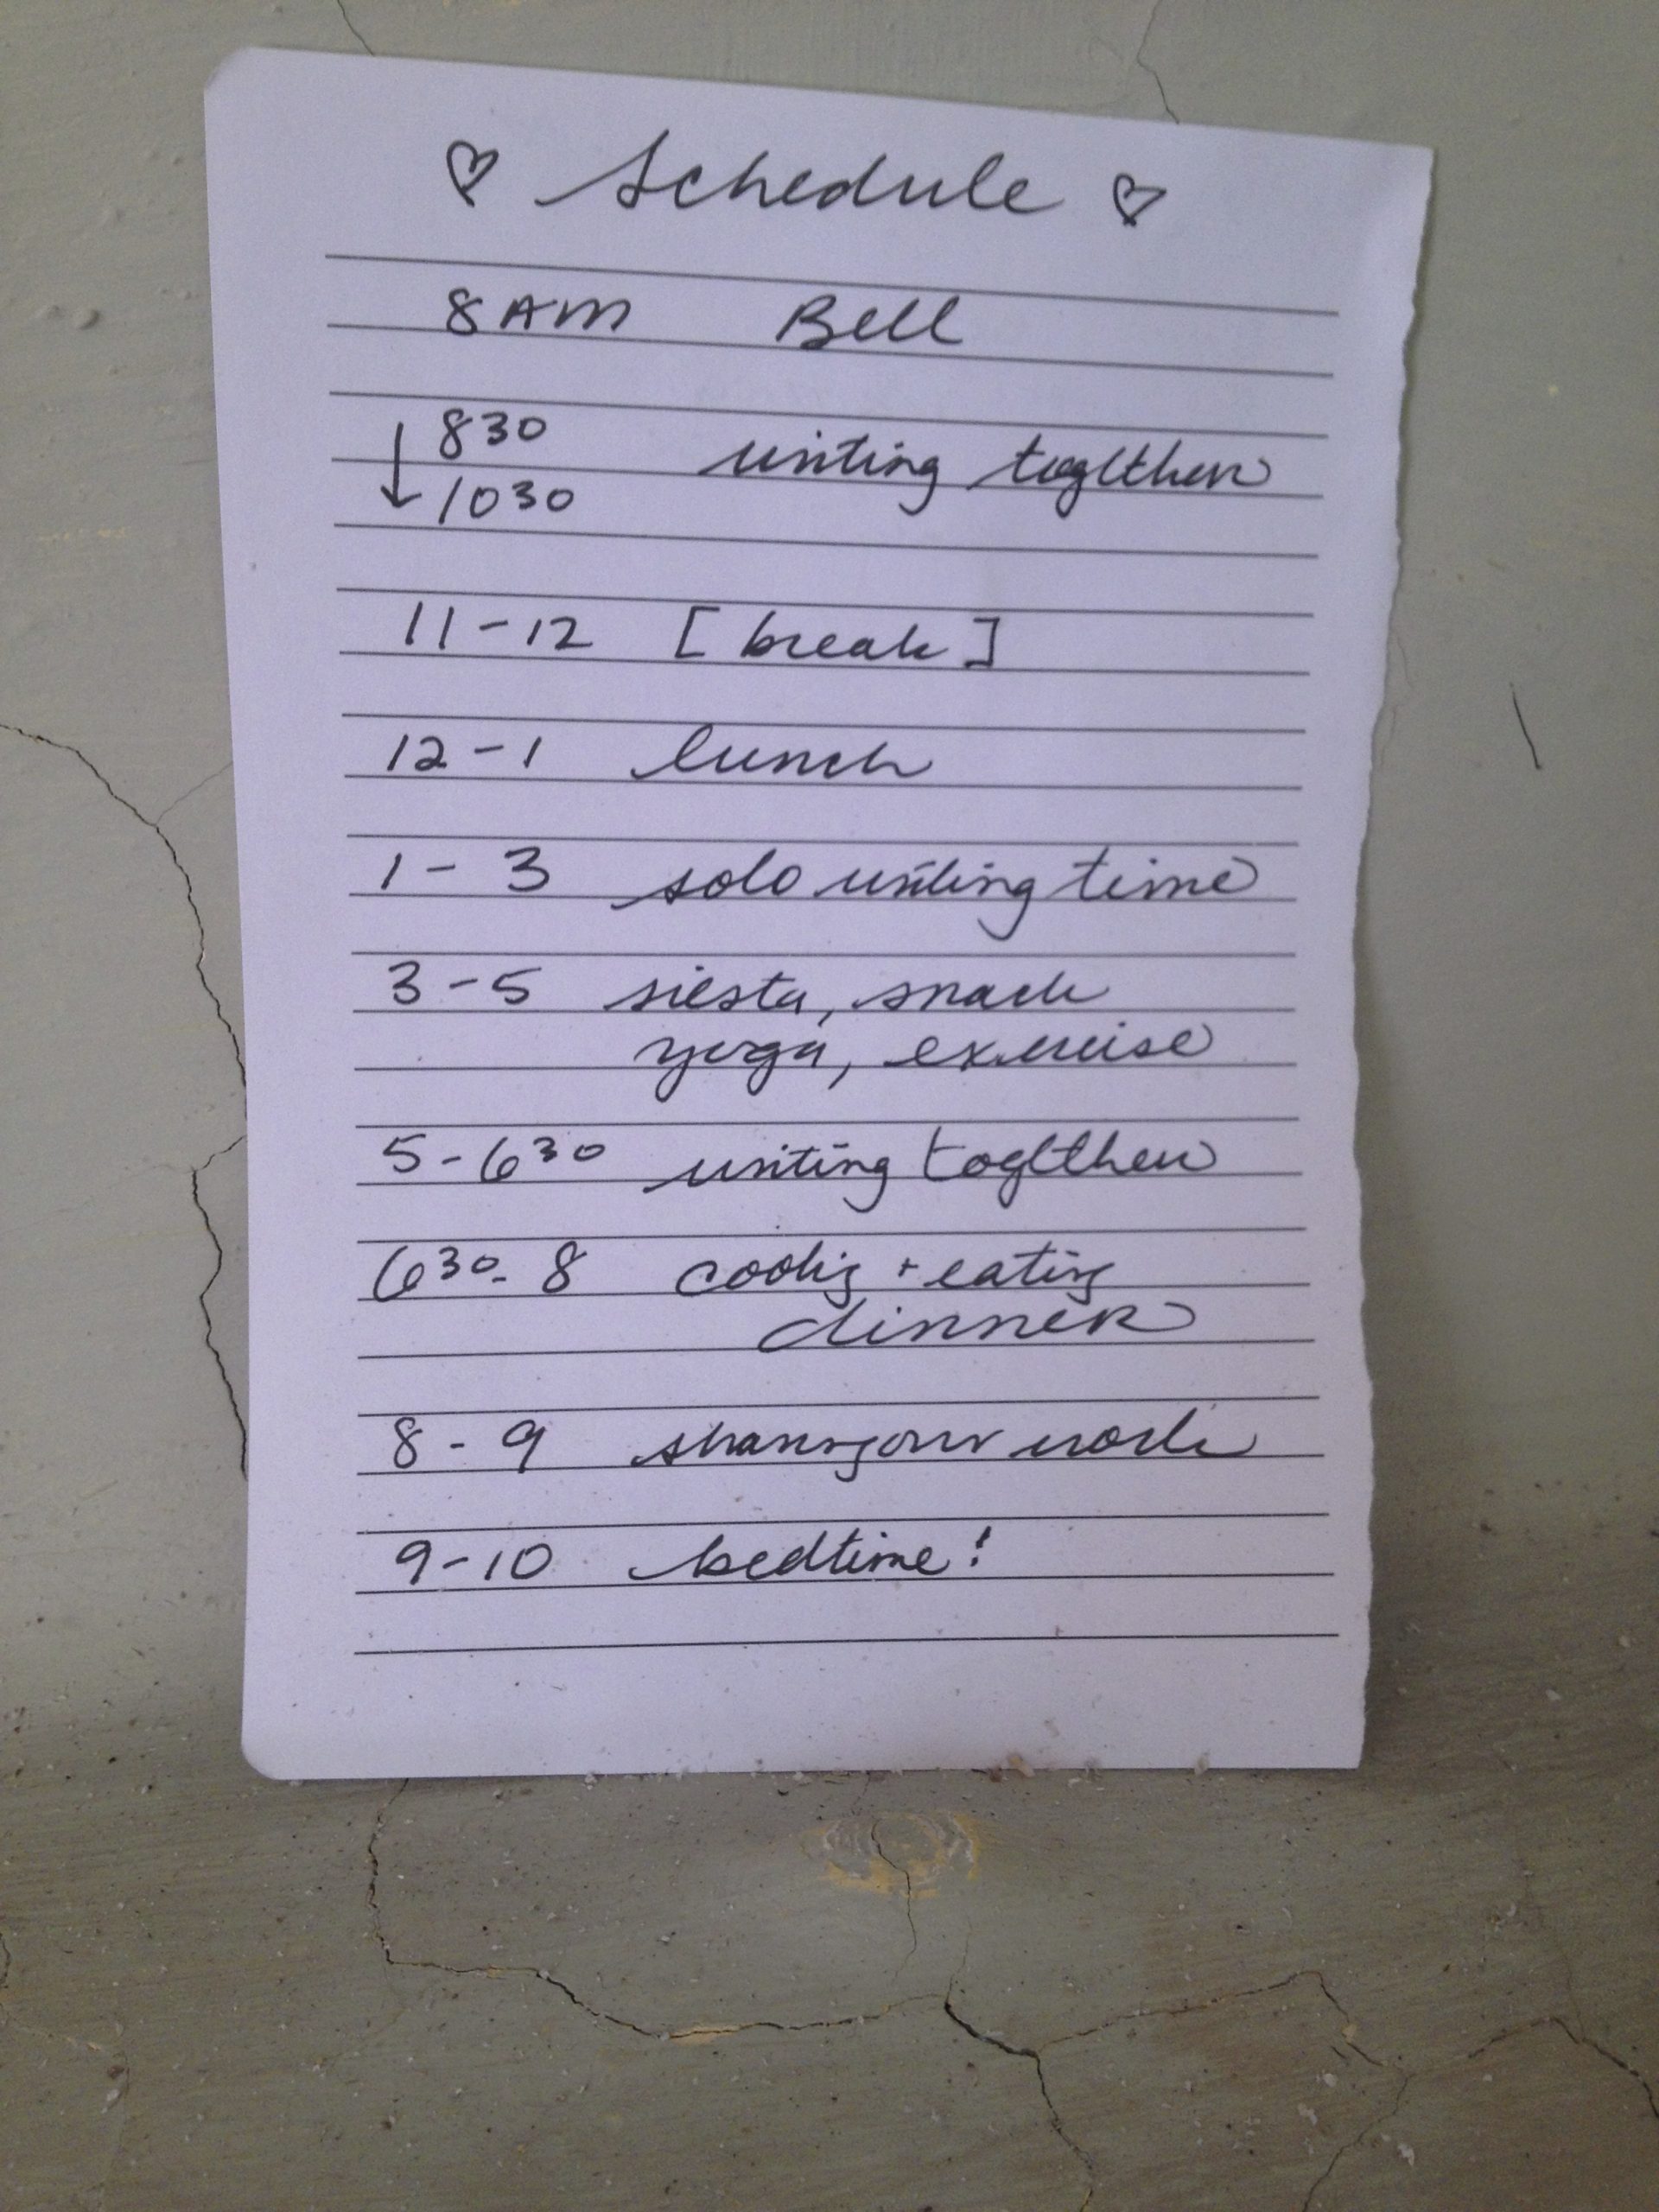 ♡ Schedule ♡
8 AM Bell
↓ 830
1030 writing together
11-12 [break]
12-1 lunch
1-3 solo writing time
3-5 siesta, snack
yoga, exercise
5-630 writing together
630-8 cooking + eating
dinner
8-9 sharing our work
9-10 bedtime!